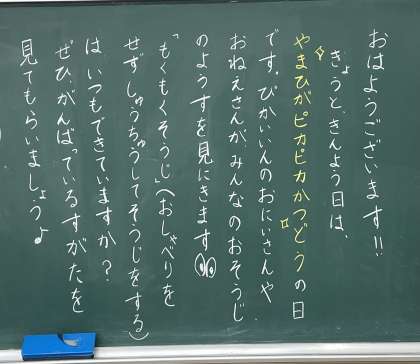 おはようございます!!
きょうと、きんよう日は、
やまひがピカピカかつどうの日
です。びかいいんのおにいさんや
おねえさんが、みんなのおそうじ
のようすを見にきます
「もくもくそうじ」(おしゃべりを
せずしゅうちゅうしてそうじをする)
は、いつもできていますか?
ぜひがんばっているすがたを
見てもらいましょう♪